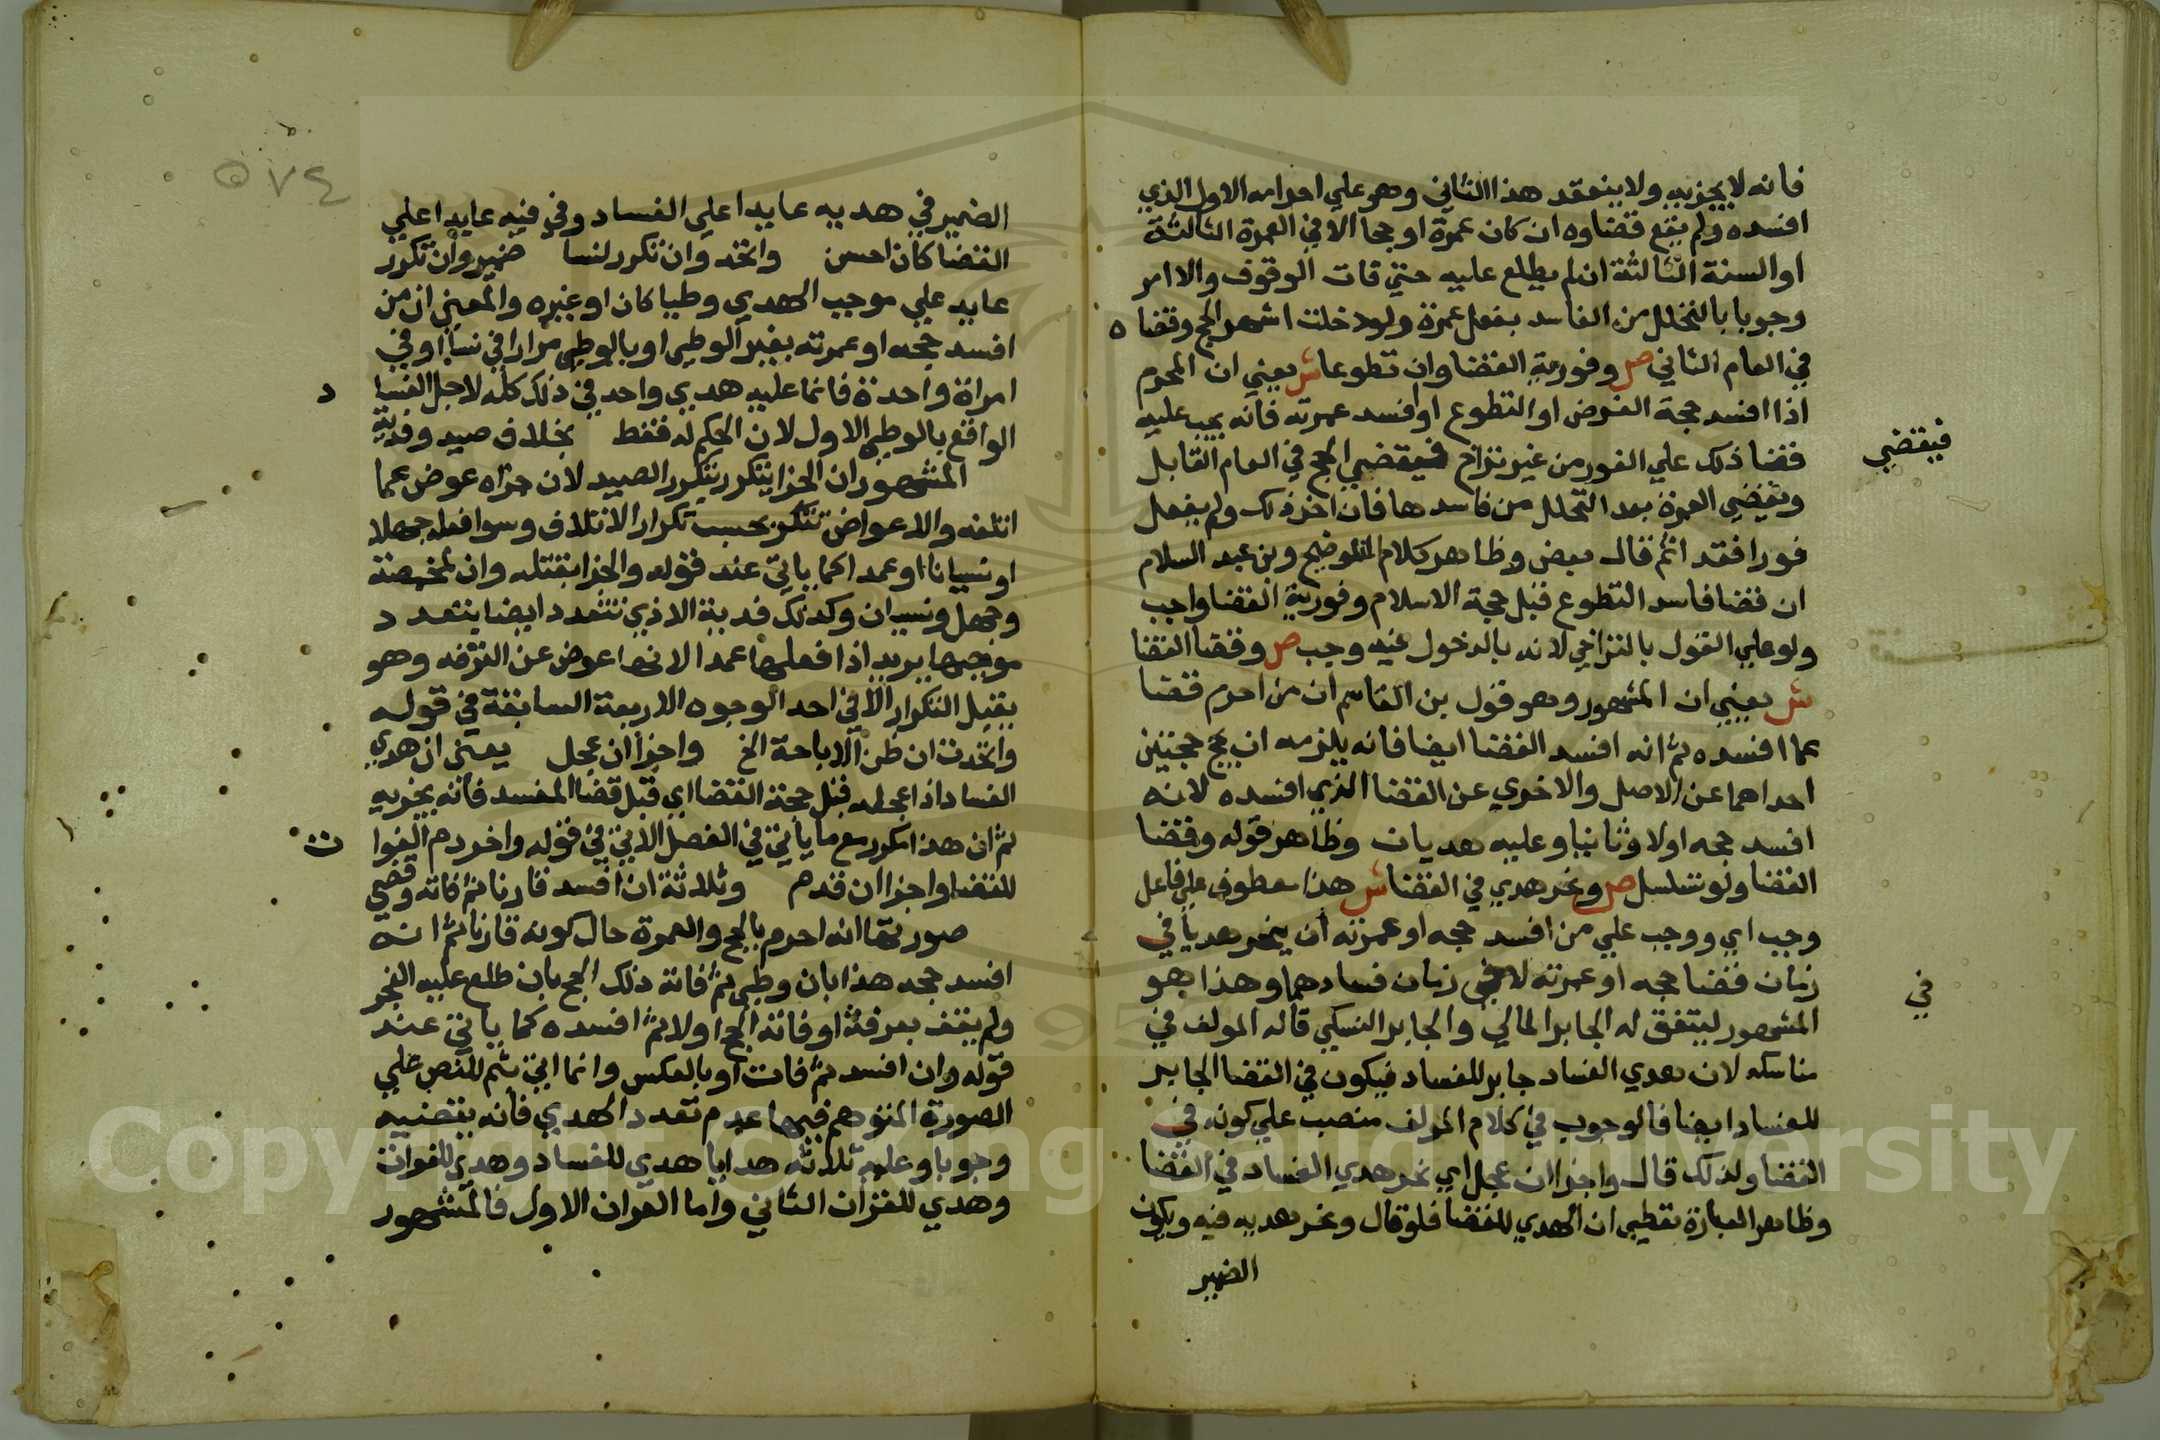 فانه لا يجزيه ولا ينعقد هذا الثاني وهو علي احرامه الاول الذي
افسده ولم يقع قضاوه ان كان عمرة او حجا الا في العمرة الثالثة
او السنة الثالثة ان لم يطلع عليه حتي فات الوقوف والا امر
وجوبا بالتحلل من الفاسد بفعل عمرة ولو دخلت اشهر الحج وقضاه
في العام الثاني ص وفورية القضا وان تطوعا ش يعني ان المحرم
اذا افسد حجة الفرض او التطوع او افسد عمرته فانه يجب عليه
قضا ذلك علي الفور من غير تراخ فيقضي الحج في العام القابل
فيقضي
ويقضي العمرة بعد التحلل من فاسدها فان اخر ذلك ولم يفعل
فورا فقد اثم قال بعض وظاهر كلام التوضيح وبن عبد السلام
ان قضا فاسد التطوع قبل حجة الاسلام وفورية القضا واجب
ولو علي القول بالتراخي لانه بالدخول فيه وجب ص وقضا القضا
ش يعني ان المشهور وهو قول بن القاسم ان من احرم قضا
عما افسده ثم انه افسد القضا ايضا فانه يلزمه ان يحج حجتين
احداهما عن الاصل والاخري عن القضا الذي افسده لانه
افسد حجه اولا وثانيا وعليه هديان وظاهر قوله وقضا
القضا ولو تسلسل ص ونحر هدي في القضا ش هذا معطوف علي فاعل
وجب اي ووجب علي من افسد حجه او عمرته ان ينحر هديا في
زمان قضا حجه او عمرته لا في زمان فسادهما وهذا هو
في
المشهور ليتفق له الجابر المالي والجابر النسكي قاله المولف في
مناسكه لان هدي الفساد جابر للفساد فيكون في القضا الجابر
للفساد ايضا فالوجوب في كلام المولف منصب علي كونه في
القضا ولذلك قال واجزا ان عجل اي نحر هدي الفساد في القضا
وظاهر العبارة يقطي ان الهدي للقضا فلو قال ونحر هديه فيه ويكون
الضمير
٥٧٤
الضمير في هديه عايدا علي الفساد وفي فيه عايدا علي
القضا كان احسن واتحد وان تكرر لنسا ضمير وان تكرر
عايد علي موجب الهدي وطيا كان او غيره والمعني ان من
افسد حجه او عمرته بغير الوطي او بالوطي مرارا في نسا او في
امراة واحدة فانما عليه هدي واحد في ذلك كله لاجل الفسا
د
الواقع بالوطي الاول لان الحكم له فقط بخلاف صيد وفدية
المشهور ان الجزا يتكرر بتكرر الصيد لان جزاه عوض عما
اتلفه والاعواض تتكرر بحسب تكرار الاتلاف وسوا فعله جهلا
او نسيانا او عمدا كما ياتي عند قوله والجزا بقتله وان لمخمصة
وجهل ونسيان وكذلك فدية الاذي تتعدد ايضا بتعدد
موجبها يريد اذا فعلها عمدا لانها عوض عن الترفه وهو
يقبل التكرار الا في احد الوجوه الاربعة السابقة في قوله
واتحدت ان ظن الاباحة الخ واجزا ان عجل يعني ان هدي
الفساد اذا عجله قبل حجة القضا اي قبل قضا المفسد فانه يجزيه
ثم ان هذا مكرر مع ما ياتي في الفصل الاتي في قوله واخر دم الفوا
ت
للقضا واجزا ان قدم وثلاثة ان افسد قارنا ثم فاته وقضي
صورتها انه احرم بالحج والعمرة حال كونه قارنا ثم انه
افسد حجه هذا بان وطي ثم فاته ذلك الحج بان طلع عليه الفجر
ولم يقف بعرفة او فاته الحج اولا ثم افسده كما ياتي عند
قوله وان افسد ثم فات او بالعكس وانما اتي بثم للنص علي
الصورة المتوهم فيها عدم تعدد الهدي فانه يقضيه
وجوبا وعليه ثلاثة هدايا هدي للفساد وهدي للفوات
وهدي للقران الثاني واما القران الاول فالمشهور
Copyright © King Saud University